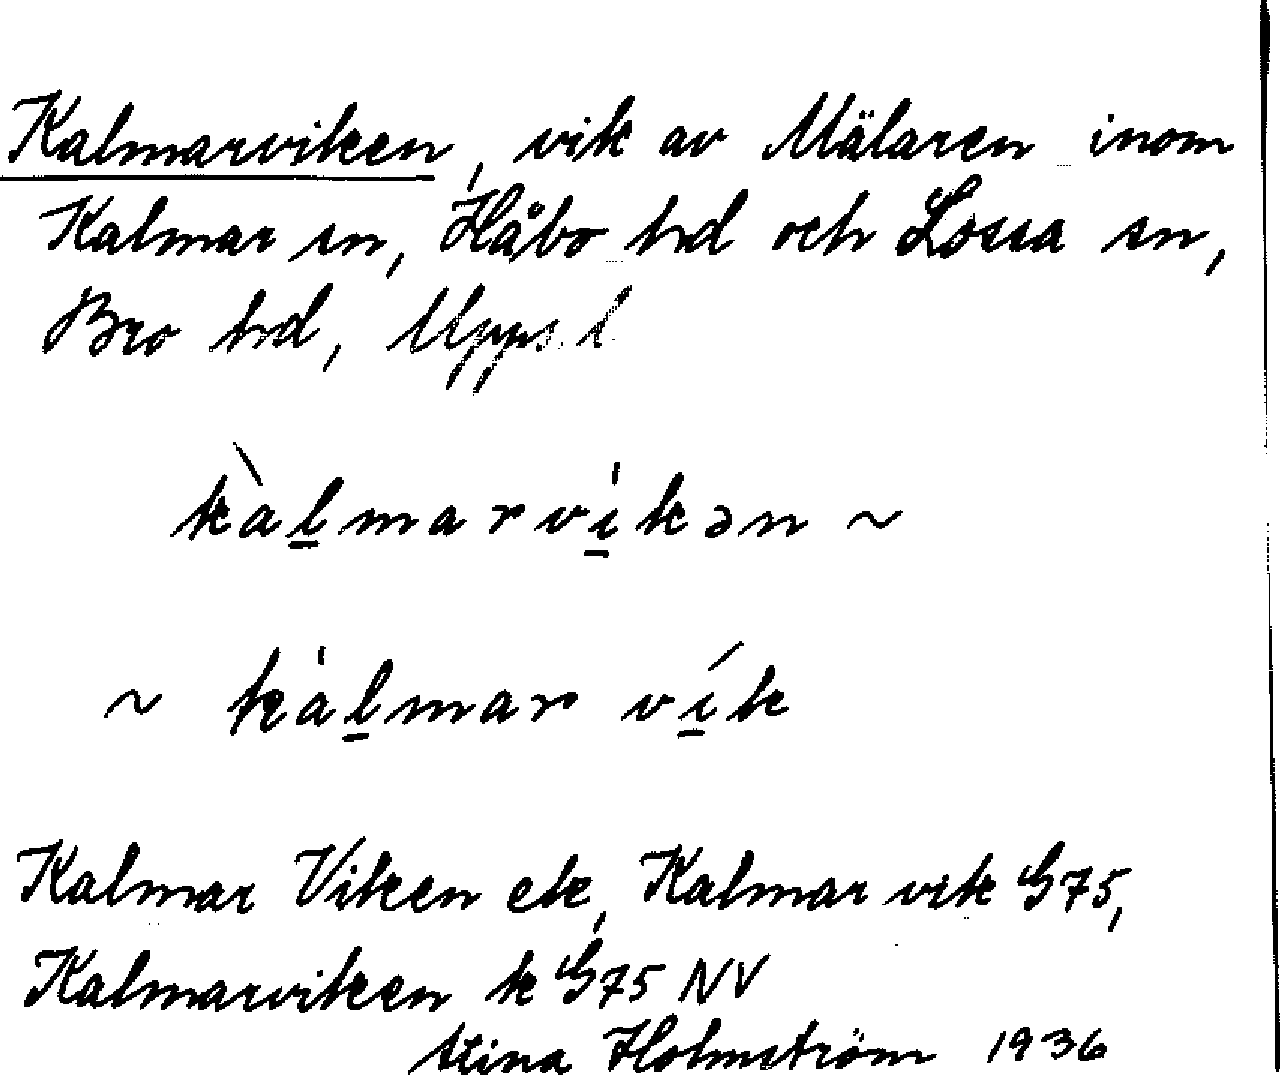 Kalmarviken, vik av Mälaren inom
Kalmar sn, Håbo hd och Lossa sn,
Bro hd, Upps. l
kàl̲marvi̲kən ~
~ kàl̲mar ví̲k
Kalmar Viken ek, Kalmar vik G75,
Kalmarviken k G75 NV
Stina Holmström 1936